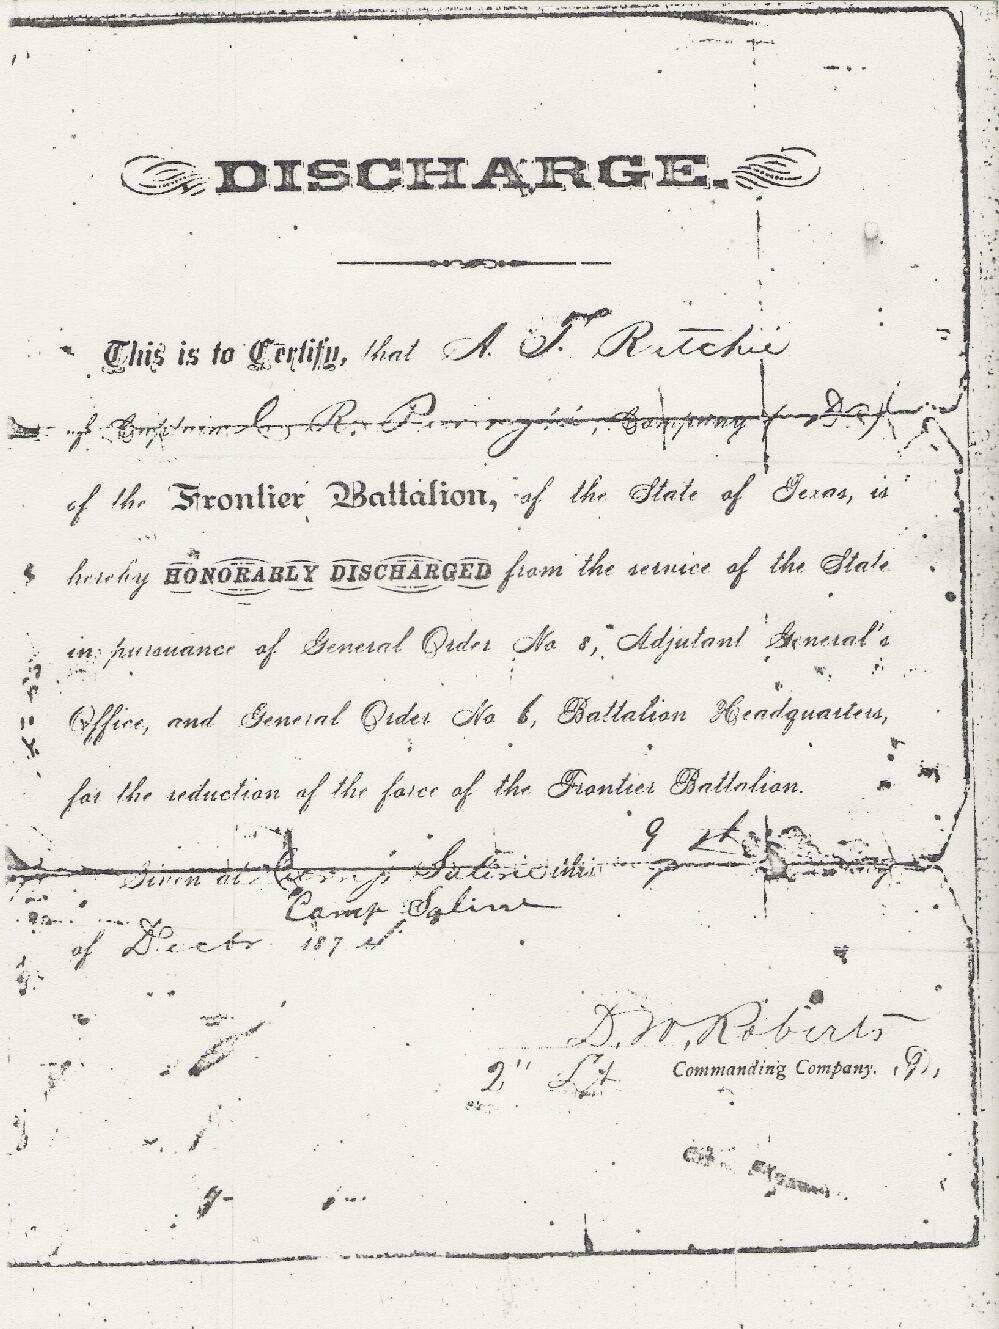 DISCHARGE.
This is to Certify, that A. T. Ritchie
of Captain C. R. Perry's, Company (D)
of the Frontier Battalion, of the State of Texas, is
hereby HONORABLY DISCHARGED from the service of the State
in pursuance of General Order No 8, Adjutant General's
Office, and General Order No 6, Battalion Headquarters,
for the reduction of the force of the Frontier Battalion.
Given at Camp Saline this 9 day
Camp Saline
of Decbr 1874
D. W. Roberts
2" Lt Commanding Company. (D),